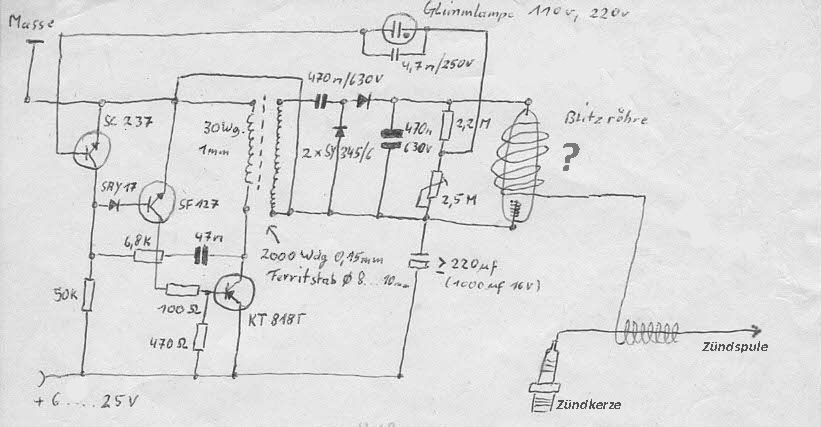 Masse
Glimmlampe 110V, 220V
4,7n/250V
470n/630V
SC 237
30Wg.
1mm
470n
630V
2,2 M
Blitzröhre
?
2 x SY 345/6
SAY17
SF 127
2,5 M
6,8K
47n
2000 Wdg 0,15mm
Ferritstab Ø 8...10mm
≥ 220µf
(1000µf 16V)
50K
100Ω
KT 818T
470Ω
Zündspule
+ 6 ..... 25V
Zündkerze